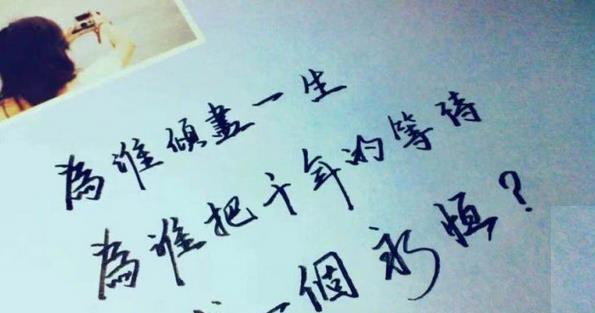 為誰傾畫一生
為誰把千年的等待
一個永恒?